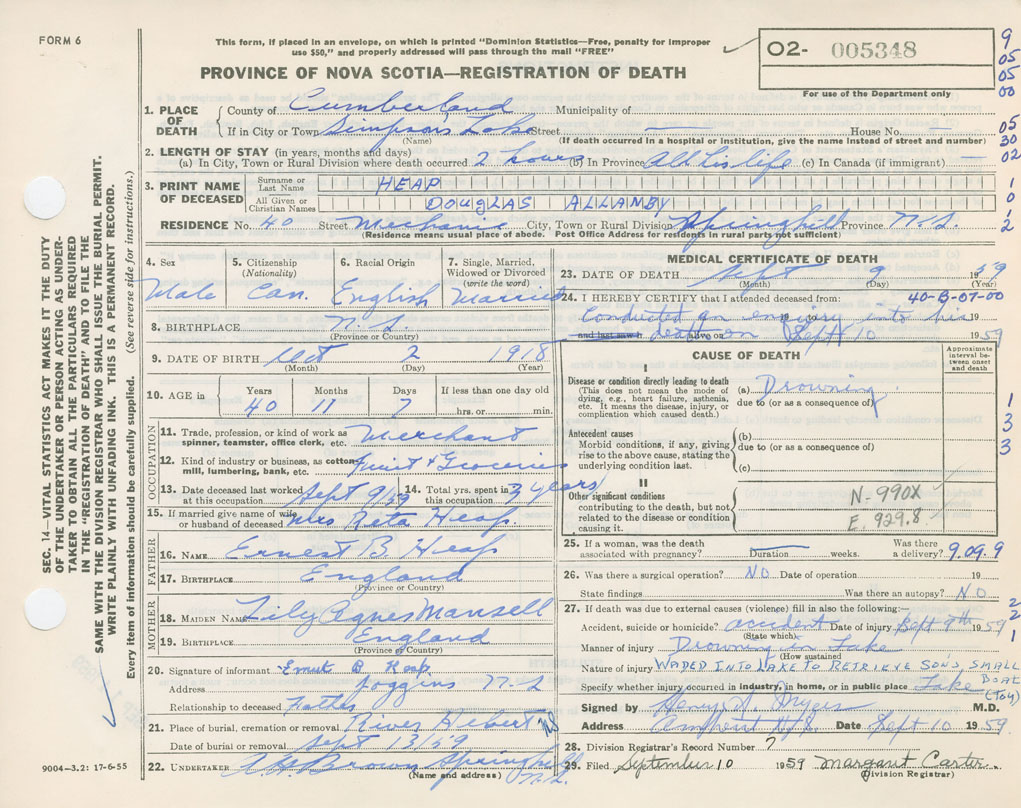 FORM 6
This form, if placed in an envelope, on which is printed "Dominion Statistics—Free, penalty for improper
use $50," and properly addressed will pass through the mail "FREE"
O2- 005348
For use of the Department only
9
05
05
00
PROVINCE OF NOVA SCOTIA—REGISTRATION OF DEATH
1. PLACE OF DEATH
County of Cumberland Municipality of
If in City or Town Simpsons Lake Street — House No. —
(Name) (If death occurred in a hospital or institution, give the name instead of street and number)
05
30
02
2. LENGTH OF STAY (in years, months and days)
(a) In City, Town or Rural Division where death occurred 2 hours (b) In Province All his life (c) In Canada (if immigrant) —
3. PRINT NAME OF DECEASED
Surname or Last Name HEAP
All Given or Christian Names DOUGLAS ALLAMBY
1
0
1
2
RESIDENCE No. 40 Street Mechanic City, Town or Rural Division Springhill Province N.S.
(Residence means usual place of abode. Post Office Address for residents in rural parts not sufficient)
4. Sex Male
5. Citizenship (Nationality) Can.
6. Racial Origin English
7. Single, Married, Widowed or Divorced (write the word) Married
8. BIRTHPLACE N.S.
(Province or Country)
9. DATE OF BIRTH Oct 2 1918
(Month) (Day) (Year)
10. AGE in Years 40 Months 11 Days 7 If less than one day old hrs. or min.
OCCUPATION
11. Trade, profession, or kind of work as spinner, teamster, office clerk, etc. Merchant
12. Kind of industry or business, as cotton mill, lumbering, bank, etc. Fruit & Groceries
13. Date deceased last worked at this occupation Sept 9/59
14. Total yrs. spent in this occupation 3 years
15. If married give name of wife or husband of deceased Mrs Reta Heap.
FATHER
16. NAME Ernest B Heap
17. BIRTHPLACE England
(Province or Country)
MOTHER
18. MAIDEN NAME Lily Agnes Mansell
19. BIRTHPLACE England
(Province or Country)
20. Signature of informant Ernest B Heap
Address Joggins N-S
Relationship to deceased Father
21. Place of burial, cremation or removal River Hebert NS
Date of burial or removal Sept 13/59
22. UNDERTAKER Brown Springhill N.S.
(Name and address)
MEDICAL CERTIFICATE OF DEATH
23. DATE OF DEATH Sept 9 1959
(Month) (Day) (Year)
24. I HEREBY CERTIFY that I attended deceased from: 40-B-07-00
Conducted an enquiry into his 19
and last saw h death on alive on Sept 10 1959
CAUSE OF DEATH
Approximate interval between onset and death
I
Disease or condition directly leading to death
(This does not mean the mode of dying, e.g., heart failure, asthenia, etc. It means the disease, injury, or complication which caused death.)
(a) Drowning
due to (or as a consequence of)
Antecedent causes
Morbid conditions, if any, giving rise to the above cause, stating the underlying condition last.
(b)
due to (or as a consequence of)
(c)
1
3
3
II
Other significant conditions
contributing to the death, but not related to the disease or condition causing it.
N-990X
E. 929.8
25. If a woman, was the death associated with pregnancy? — Duration weeks. Was there a delivery? 9.09.9
26. Was there a surgical operation? NO Date of operation 19
State findings Was there an autopsy? NO
27. If death was due to external causes (violence) fill in also the following:—
Accident, suicide or homicide? accident Date of injury Sept 9th 1959
(State which)
Manner of injury Drowning in Lake
(How sustained
Nature of injury WADED INTO LAKE TO RETRIEVE SON'S SMALL BOAT (TOY)
Specify whether injury occurred in industry, in home, or in public place Lake
2
2
1
Signed by M.D.
Address Amherst N.S. Date Sept 10 1959
28. Division Registrar's Record Number 7
29. Filed September 10 1959 Margaret Carter
(Division Registrar)
SEC. 14—VITAL STATISTICS ACT MAKES IT THE DUTY
OF THE UNDERTAKER OR PERSON ACTING AS UNDER-
TAKER TO OBTAIN ALL THE PARTICULARS REQUIRED
IN THE "REGISTRATION OF DEATH" AND TO FILE THE
SAME WITH THE DIVISION REGISTRAR WHO SHALL ISSUE THE BURIAL PERMIT.
WRITE PLAINLY WITH UNFADING INK. THIS IS A PERMANENT RECORD.
Every item of information should be carefully supplied. (See reverse side for instructions.)
9004-3.2: 17-6-55